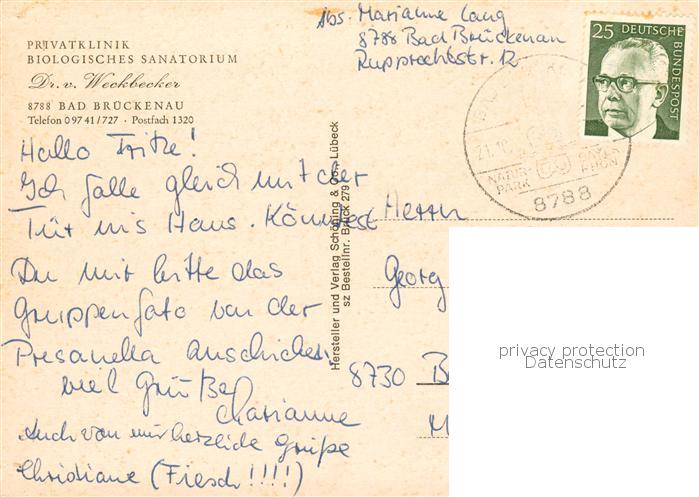 PRIVATKLINIK
BIOLOGISCHES SANATORIUM
Dr. v. Weckbecker
8788 BAD BRÜCKENAU
Telefon 0 97 41 / 727 · Postfach 1320
Abs. Marianne Lang
8788 Bad Brückenau
Rupprechtstr. 12
25 DEUTSCHE BUNDESPOST
21.10
NATUR-
PARK
8788
Hallo Fritze!
Ich falle gleich mit der
Tür ins Haus. Könntest
Du mir bitte das
Gruppenfoto von der
Presanella anschicken
viel Grüße
Marianne
Auch von mir herzliche Grüße
Christiane (Fiesch!!!!)
Hersteller und Verlag Schöning & Co., Lübeck
sz Bestellnr. Bārück 279
Herrn
Georg
8730 B
M
privacy protection
Datenschutz